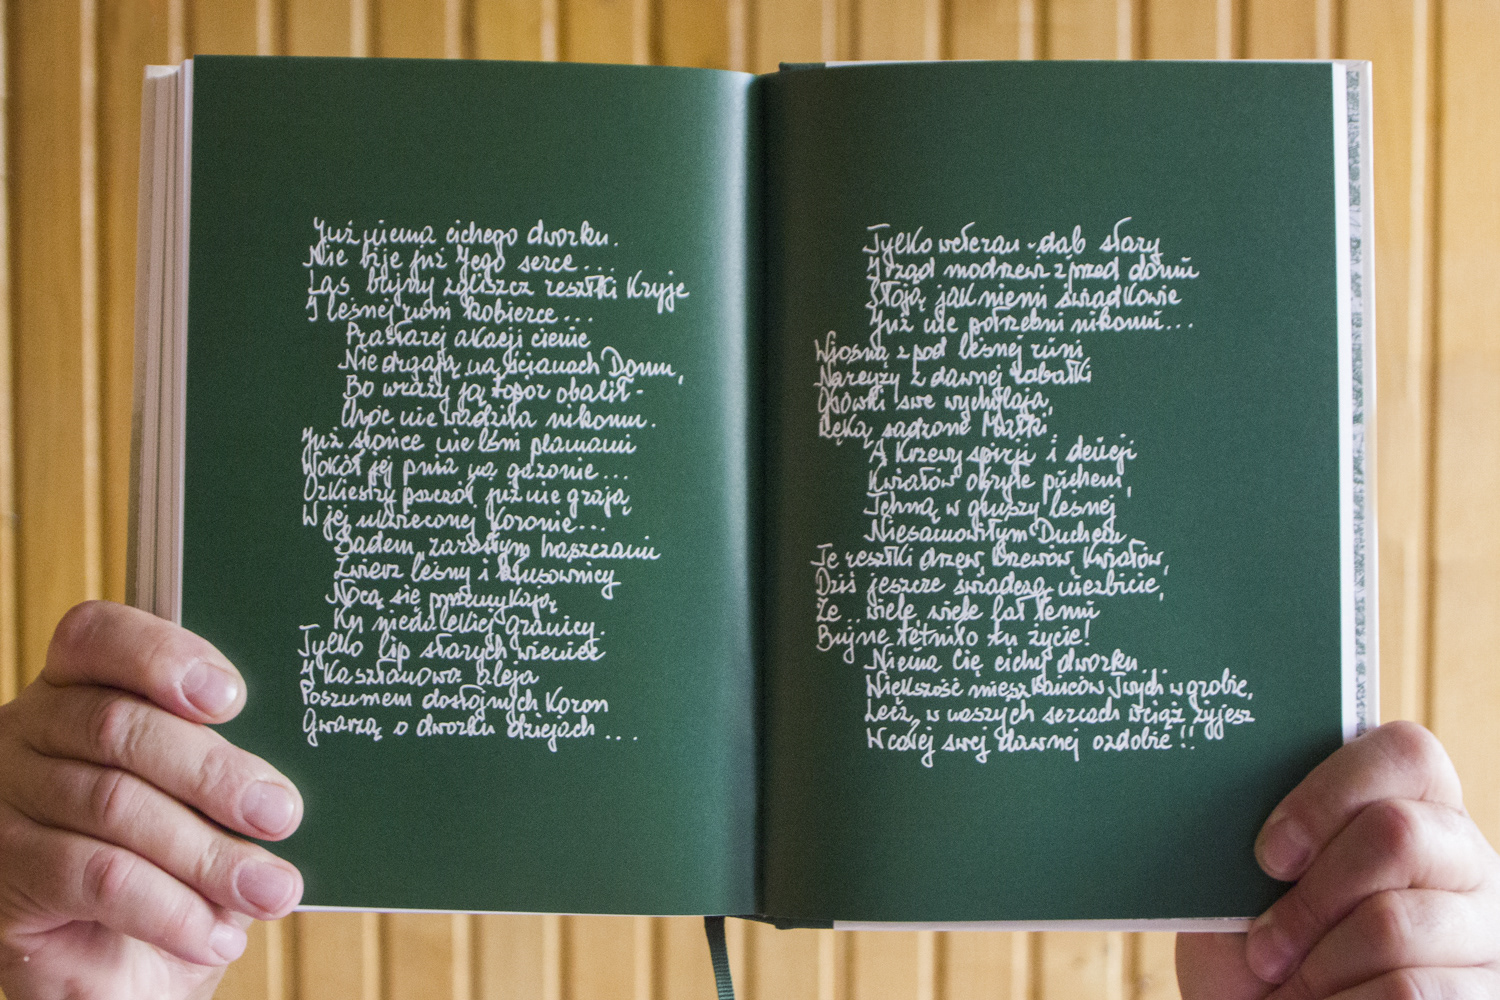 Już niema cichego dworku.
Nie bije już Jego serce...
Las bujny zgliszcz resztki Kryje
I leśnej runi kobierce...
Prastarej akacji cienie
Nie drgają na ścianach Domu,
Bo wraży ją topór obalił-
Choć nie wadziła nikomu.
Już słońce nie lśni plamami
Wokół jej pnia na gazonie...
Orkiestry pszczół już nie grają
W jej ukwieconej Koronie...
Sadem zarosłym haszczami
Zwierz leśny i kłusownicy
Nocą się przemykają
Ku niedalekiej granicy.
Tylko lip starych wieniec
I Kasztanowa aleja
Poszumem dostojnych Koron
Gwarzą o dworku dziejach...
Tylko weteran-dąb stary
I rząd modrzewi z przed domu
Stoją jak niemi świadkowie
Już nie potrzebni nikomu...
Wiosną z pod leśnej runi
Narcyzy z dawnej rabatki
Główki swe wychylają,
Ręką sadzone Matki
A Krzewy spireji i deucji
Kwiatów okryte puchem,
Tchną w głuszy leśnej
Niesamowitym Duchem
Te resztki drzew, Krzewów, Kwiatów,
Dziś jeszcze świadczą niezbicie,
Że.. wiele, wiele lat temu
Bujne tętniło tu życie!
Niema Cię cichy dworku...
Większość mieszkańców Twych w grobie,
Lecz, w naszych sercach wciąż żyjesz
W całej swej dawnej ozdobie!!